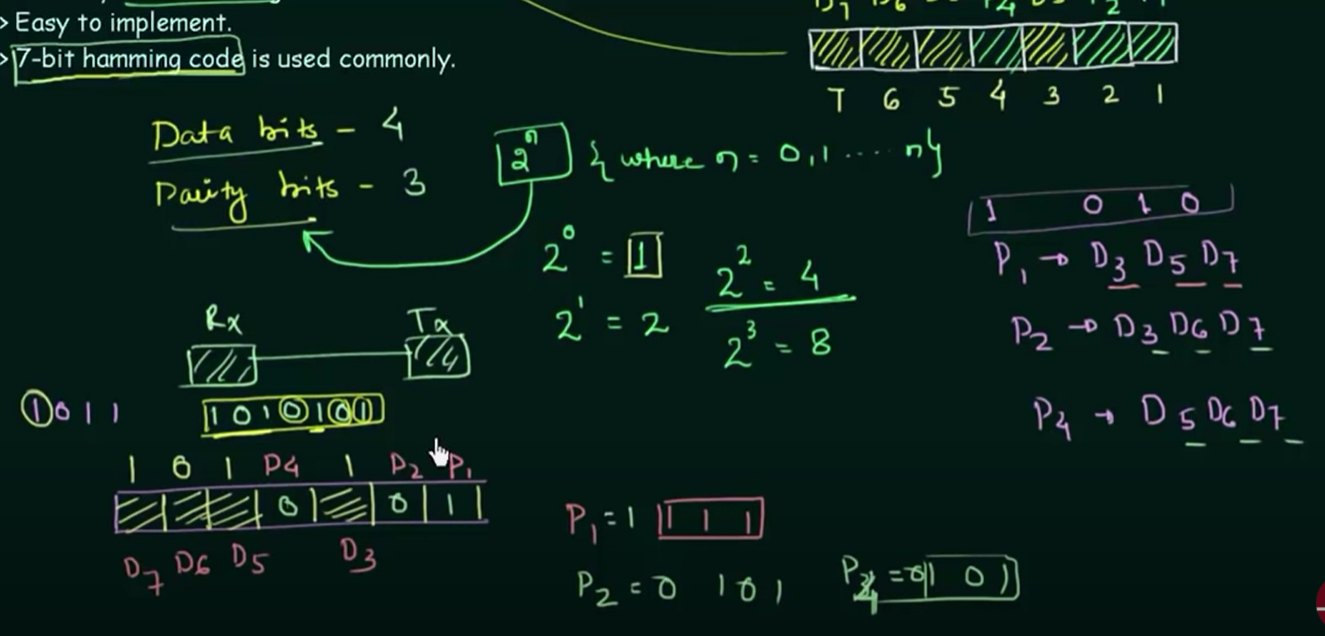 > Easy to implement.
> 7-bit hamming code is used commonly.
7 6 5 4 3 2 1
Data bits - 4
Parity bits - 3
2^n { where n = 0, 1 .... n}
1 0 1 0
P1 → D3 D5 D7
2^0 = 1
2^2 = 4
2^1 = 2
2^3 = 8
P2 → D3 D6 D7
P4 → D5 D6 D7
Rx Tx
1011
1010101
1 0 1 P4 1 P2 P1
0 0 1
D7 D6 D5 D3
P1 = 1 1 1 1
P2 = 0 1 0 1
P4 = 0 1 0 1